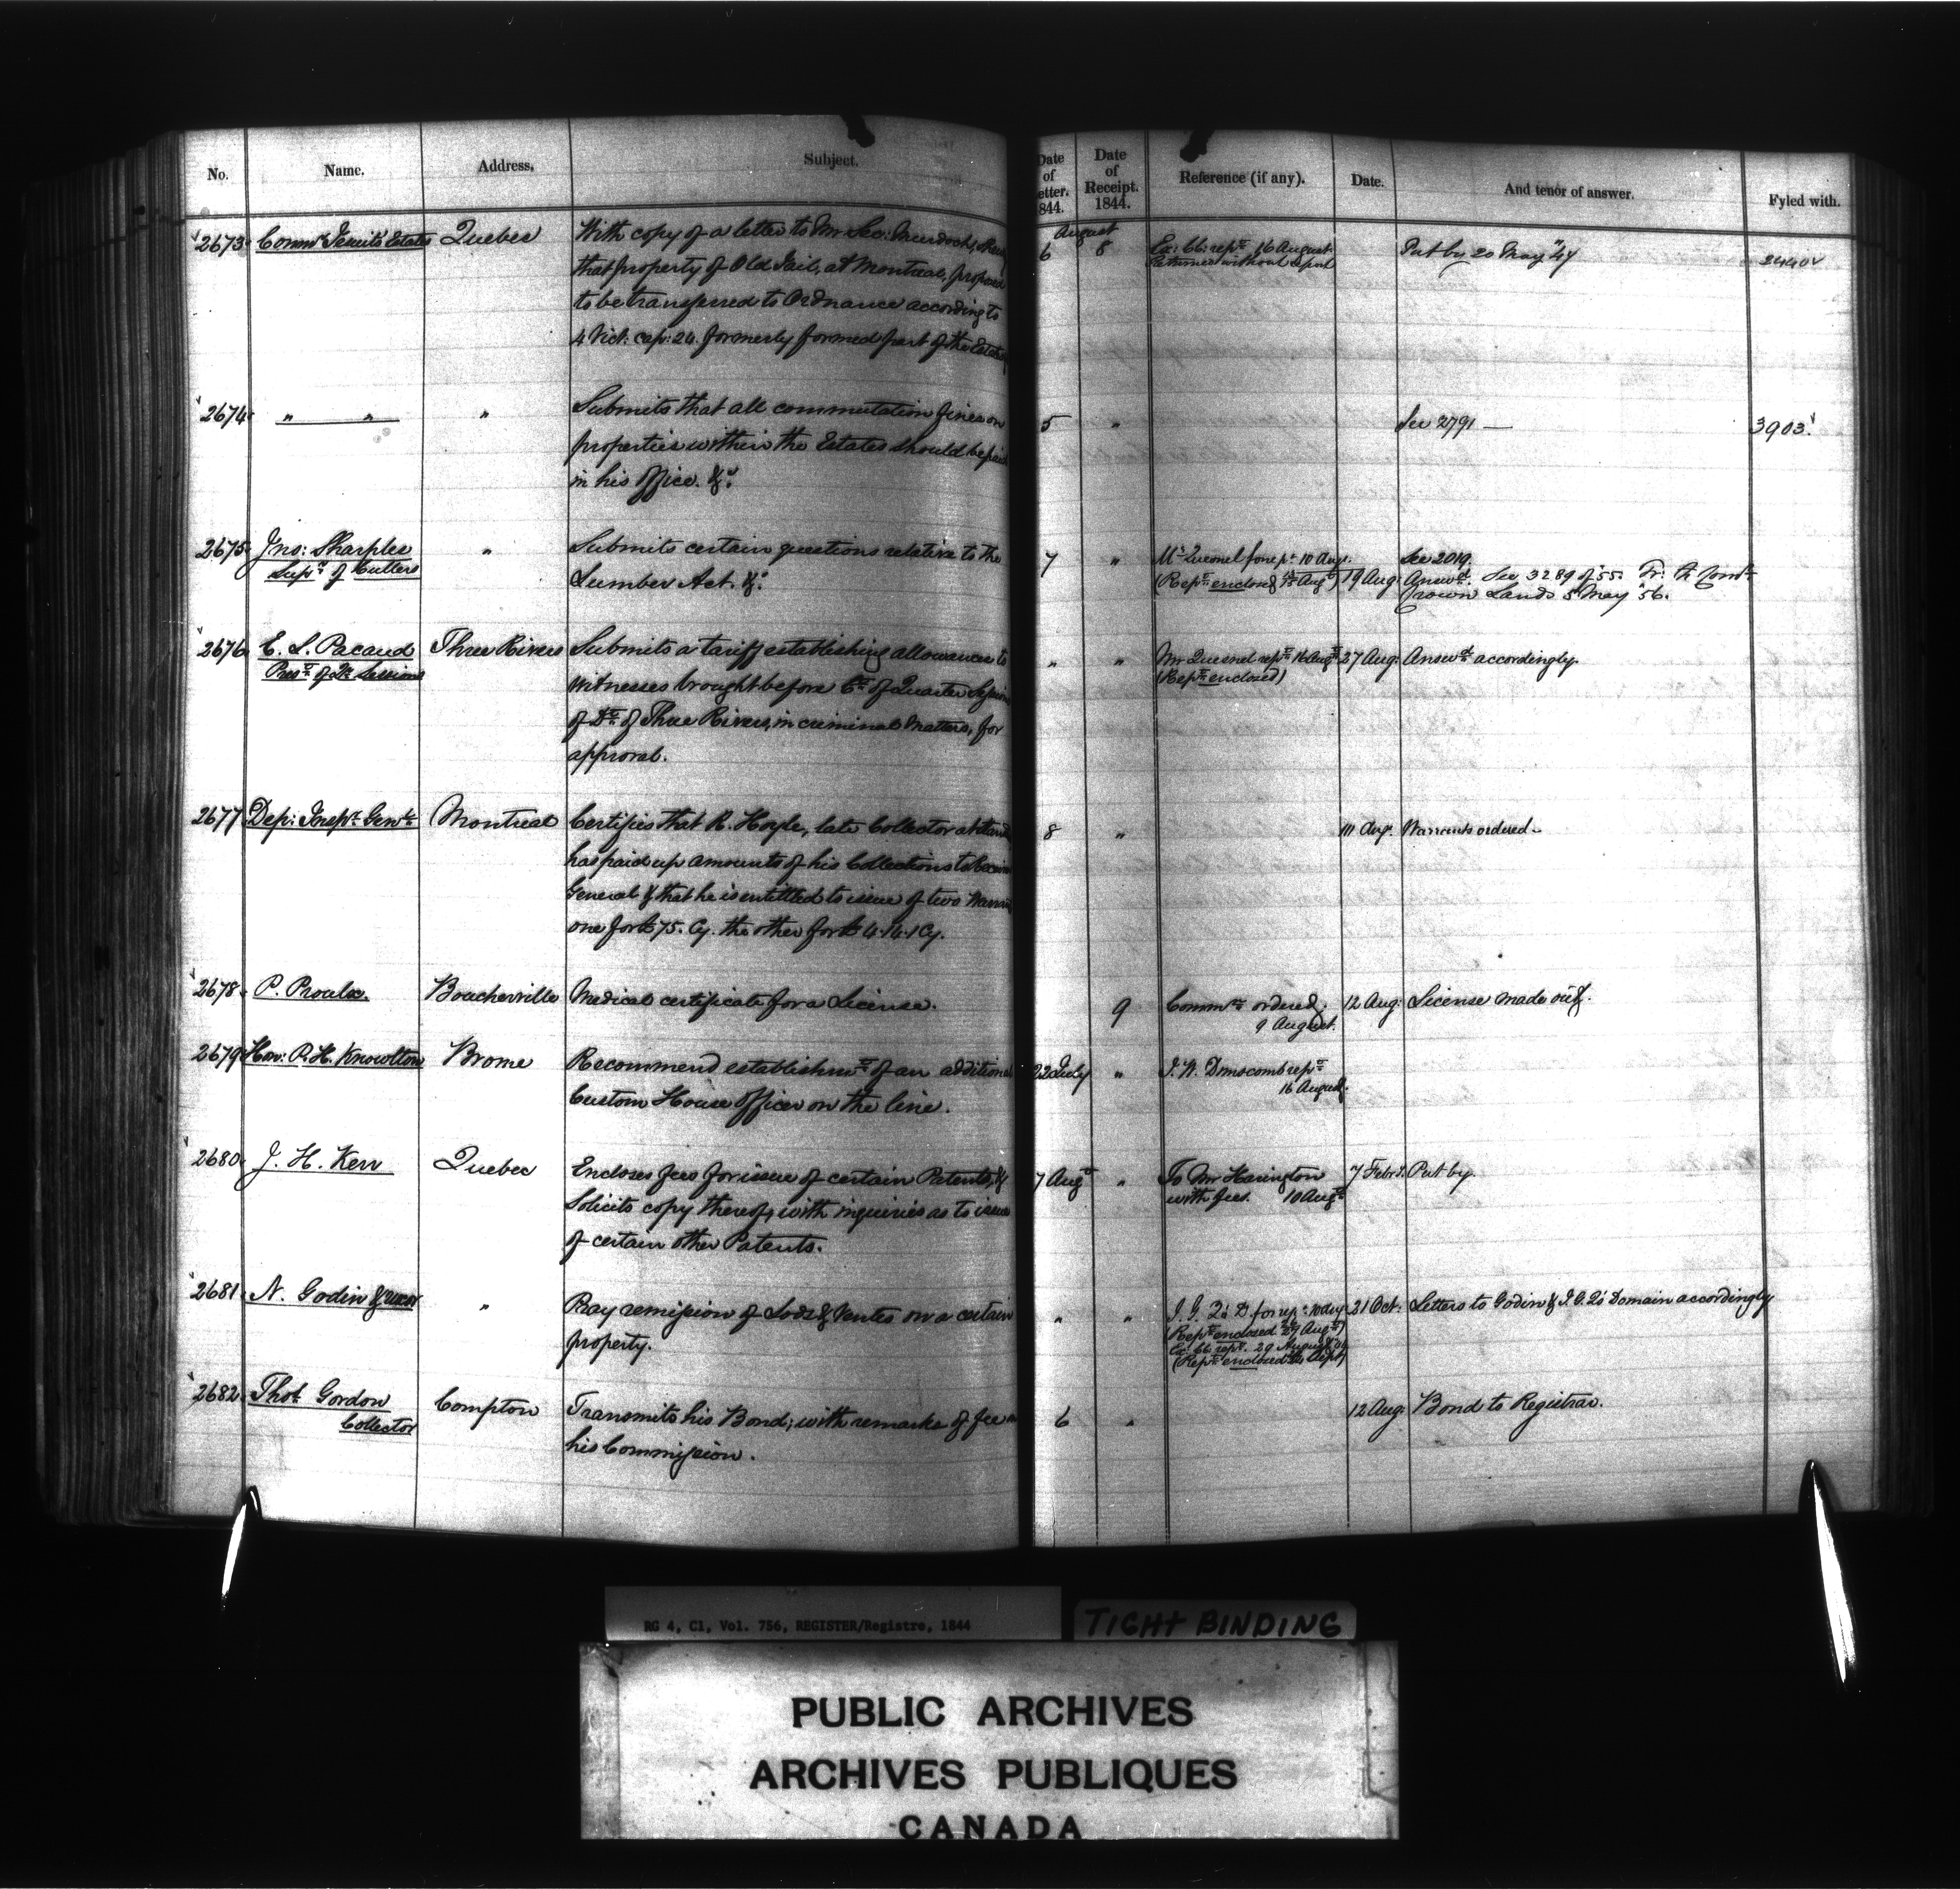 No. Name. Address. Subject. Date of Letter. 1844. Date of Receipt. 1844. Reference (if any). Date. And tenor of answer. Fyled with.
August
2673 Commr Jesuits' Estates Quebec With copy of a letter to Mr Sec: Murdoch, 6 8 Ex: CC: rept 16 August. Put by 20 May "47 2440
that property of Old Jail, at Montreal, proposed Returned without report
to be transferred to Ordnance according to
4 Vict: cap: 24. formerly formed part of the Estates
2674 " " " Submits that all commutation fines on 5 " See 2791 — 3903.
properties within the Estates should be paid
in his office. &c.
2675 Jno: Sharples " Submits certain questions relative to the 7 " Mr Quesnel for rept 10 Aug. See 2019.
Supr of Cutters Lumber Act. &c. (Rept enclosed Augt) 19 Aug: Answd. See 3289 of '55. Tr: to Comr
Crown Lands 5 May '56.
2676 E. L. Pacaud Three Rivers Submits a tariff establishing allowances to " " Mr Quesnel rept 16 Augt 27 Aug: Answd accordingly.
Prest of Qr Sessions witnesses brought before Ct of Quarter Sessions (Rept enclosed)
of Dt of Three Rivers, in criminal matters, for
approval.
2677 Dep: Inspr Genl Montreal Certifies that R. Hoyle, late Collector at 8 " Aug. Warrants ordered.
has paid up amounts of his Collections to Receiver
General & that he is entitled to issue of two
one for £75. Cy. the other for £4.14.1 Cy.
2678 P. Proulx. Boucherville Medical certificate for a License. 9 Commn ordered. 12 Aug: License made out.
9 August.
2679 Hon: P. H. Knowlton Brome Recommend establishmt of an additional 22 July " J. W. Dunscomb rept
Custom House Officer on the line. 16 August.
2680 J. H. Kerr Quebec Encloses fees for issue of certain Patents, & 7 Augt " To Mr Harington 7 Febr. Put by.
Solicits copy thereof, with inquiries as to issue with fees. 10 Augt
of certain other Patents.
2681 N. Godin & uxor " Pray remission of Lods & Ventes on a certain " " I. G. Q's D for rept 10 Aug 21 Oct: Letters to Godin & I. G. Q's Domain accordingly
property. (Rept enclosed 27 Augt)
Ex: CC. rept. 29 August
(Rept enclosed Sept)
2682 Thos Gordon Compton Transmits his Bond; with remarks of fee on 6 " 12 Aug: Bond to Registrar.
Collector his Commission.
RG 4, C1, Vol. 756, REGISTER/Registre, 1844
TIGHT BINDING
PUBLIC ARCHIVES
ARCHIVES PUBLIQUES
CANADA